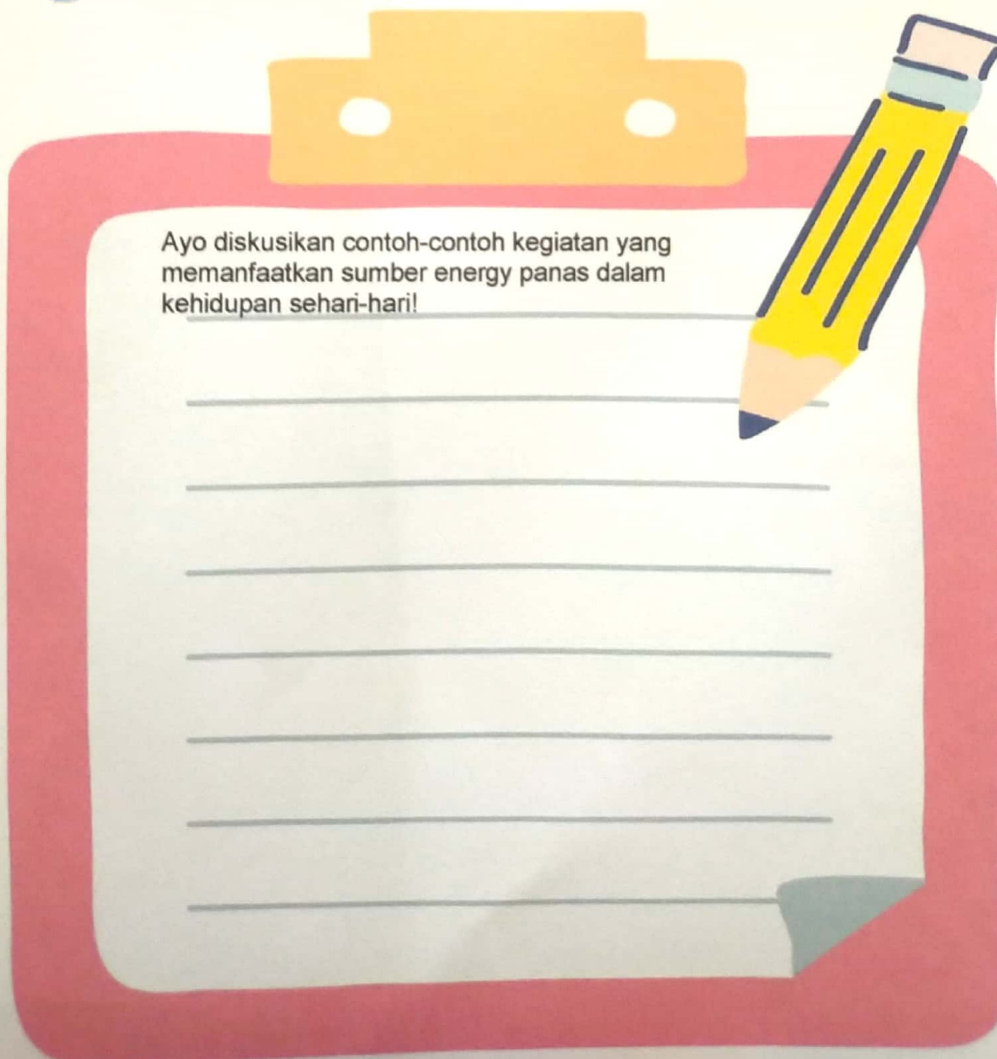 Ayo diskusikan contoh-contoh kegiatan yang
memanfaatkan sumber energy panas dalam
kehidupan sehari-hari!